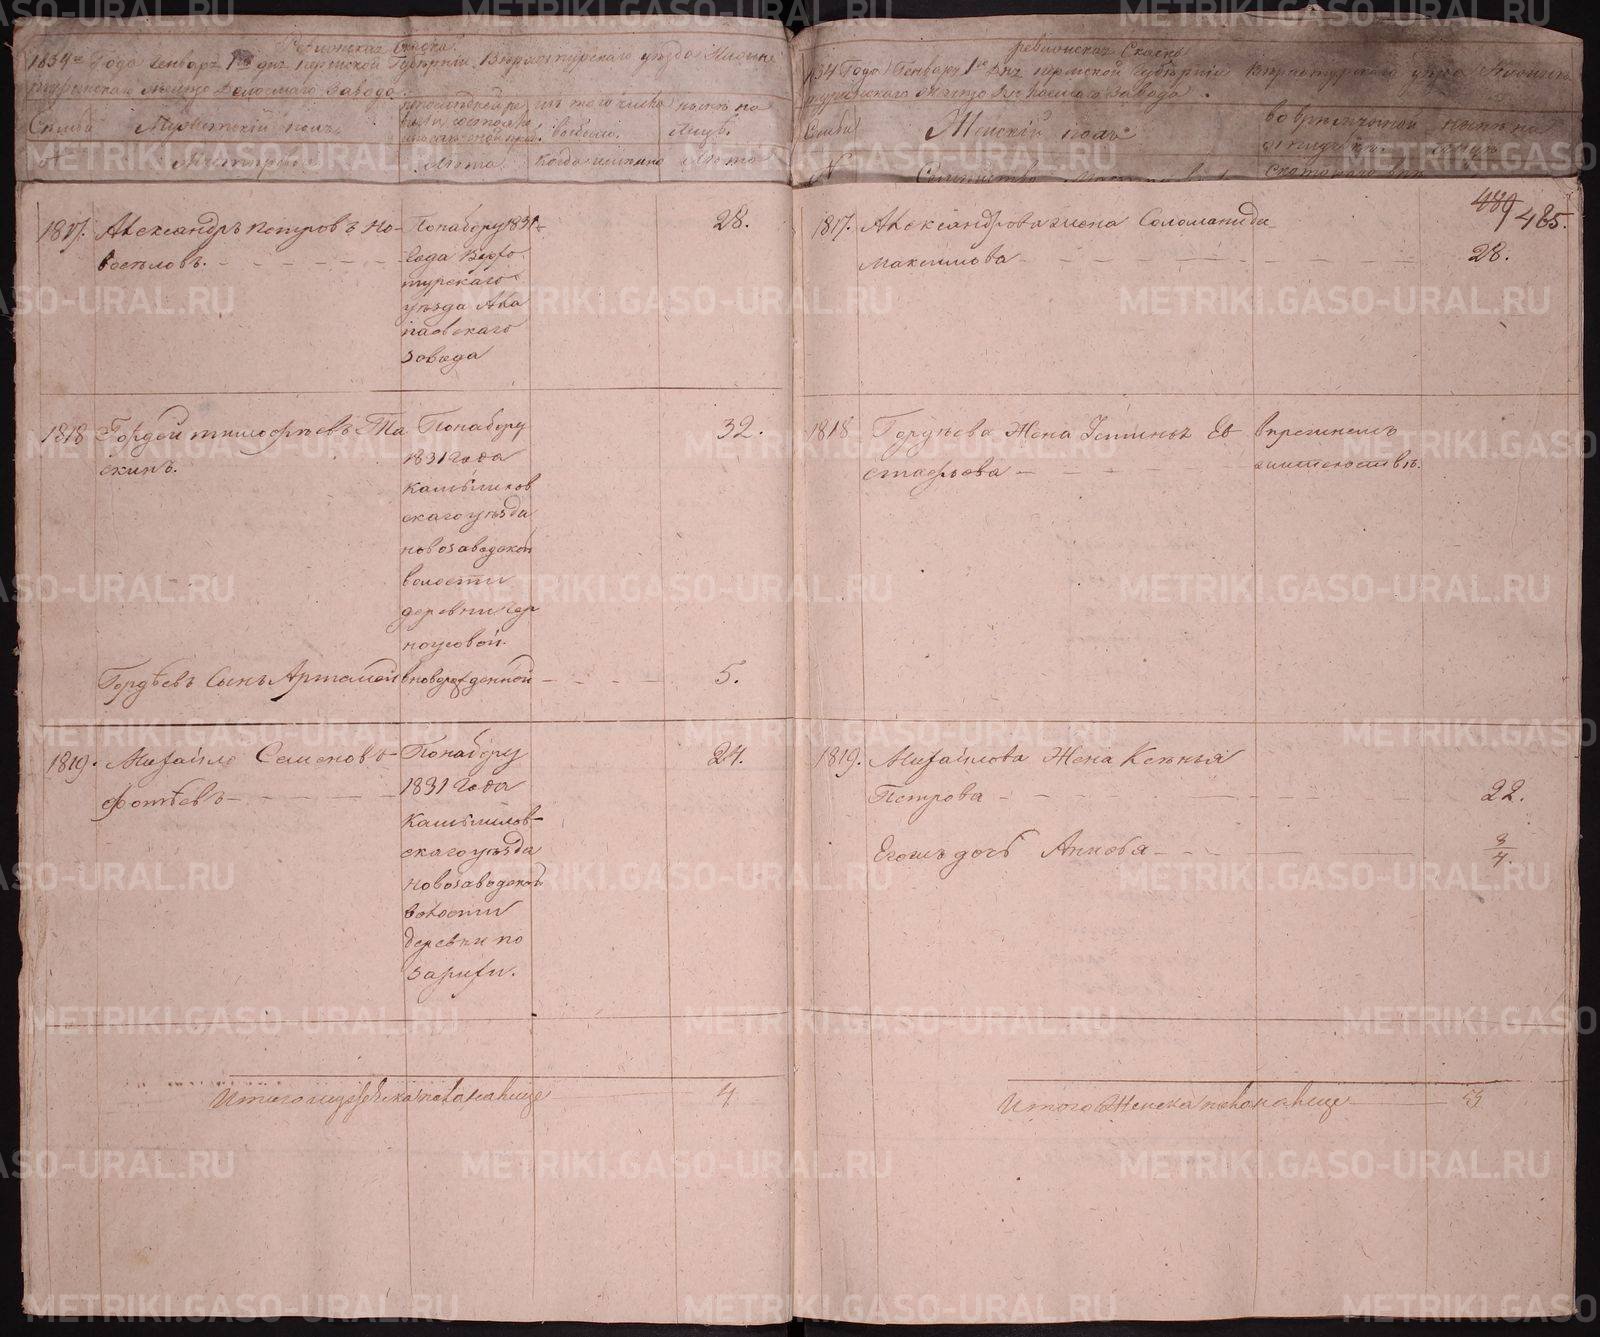 Ревизская сказка.
1834го Года Генваря 1го дня Пермской Губернии Верхотурскаго уезда Нижне
туринскаго казенно железнаго завода
Семьи
Мужеский полъ
изъ того числа
выбыло.
ныне на
лицо.
№
Лета
когда именно
Лета
1817. Александръ Петровъ Но-
воселовъ.
По набору 1831
года Верхо
турскаго
уезда Ала
паевскаго
завода
28.
1818 Гордей Тимофеевъ Та
скинъ.
По набору
1831 года
Камышлов
скаго уезда
новозаводской
волости
деревни Чер
ноусовой.
32.
Гордеевъ Сынъ Артамон
вноворожденной
5.
1819. Михайло Семеновъ
Фотеевъ
По набору
1831 года
Камышлов-
скаго уезда
новозаводской
волости
деревни по
зарихи.
24.
Итого мужеска пола на лице
4
ревизская Сказка
1834 Года Генваря 1го дня Пермской Губернии Верхотурскаго уезда Нижне
туринскаго завода.
Семьи
Женский полъ
во временной
отлучке.
ныне на
лицо
№
Семейство
489 485.
1817. Александрова жена Соломанида
Максимова
28.
1818 Гордеева Жена Устинья Ев
стафьева
в прежнемъ
жительстве.
1819. Михайлова Жена Ксенья
Петрова
22.
Егожъ дочь
3/4.
Итого Женска пола на лице
3
METRIKI.GASO-URAL.RU